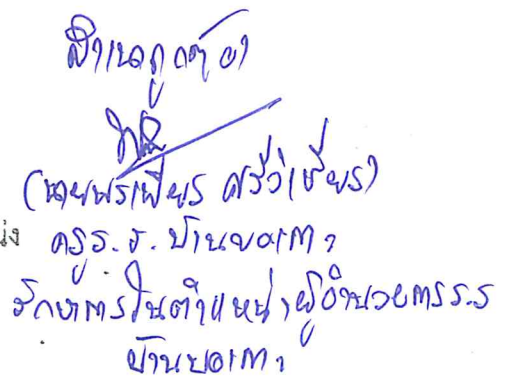 สำเนาถูกต้อง
(นายพรเพียร ศรีวิเชียร)
ครู ร.ร. บ้าน
รักษาการในตำแหน่งผู้อำนวยการ ร.ร
บ้าน